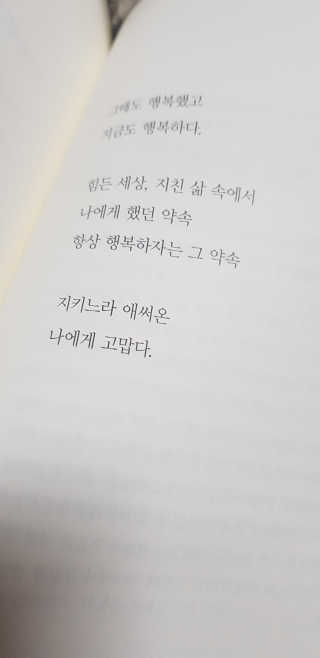 그때도 행복했고
지금도 행복하다.
힘든 세상, 지친 삶 속에서
나에게 했던 약속
항상 행복하자는 그 약속
지키느라 애써온
나에게 고맙다.